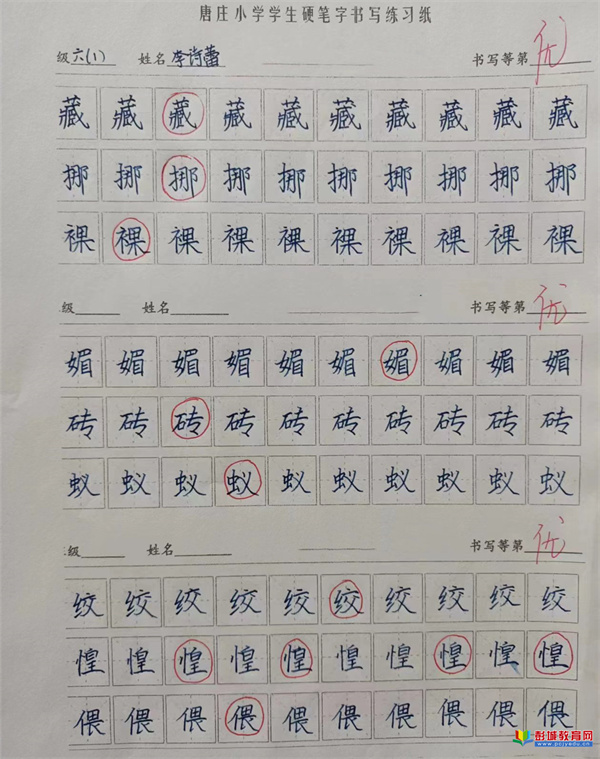 唐庄小学学生硬笔字书写练习纸
级 六(1) 姓名 李诗蕾 书写等第 优
藏 藏 藏 藏 藏 藏 藏 藏 藏 藏
挪 挪 挪 挪 挪 挪 挪 挪 挪 挪
裸 裸 裸 裸 裸 裸 裸 裸 裸 裸
级 姓名 书写等第 优
媚 媚 媚 媚 媚 媚 媚 媚 媚 媚
砖 砖 砖 砖 砖 砖 砖 砖 砖 砖
蚁 蚁 蚁 蚁 蚁 蚁 蚁 蚁 蚁 蚁
级 姓名 书写等第 优
绞 绞 绞 绞 绞 绞 绞 绞 绞 绞
惶 惶 惶 惶 惶 惶 惶 惶 惶 惶
偎 偎 偎 偎 偎 偎 偎 偎 偎 偎
彭城教育网
www.pcjyedu.cn